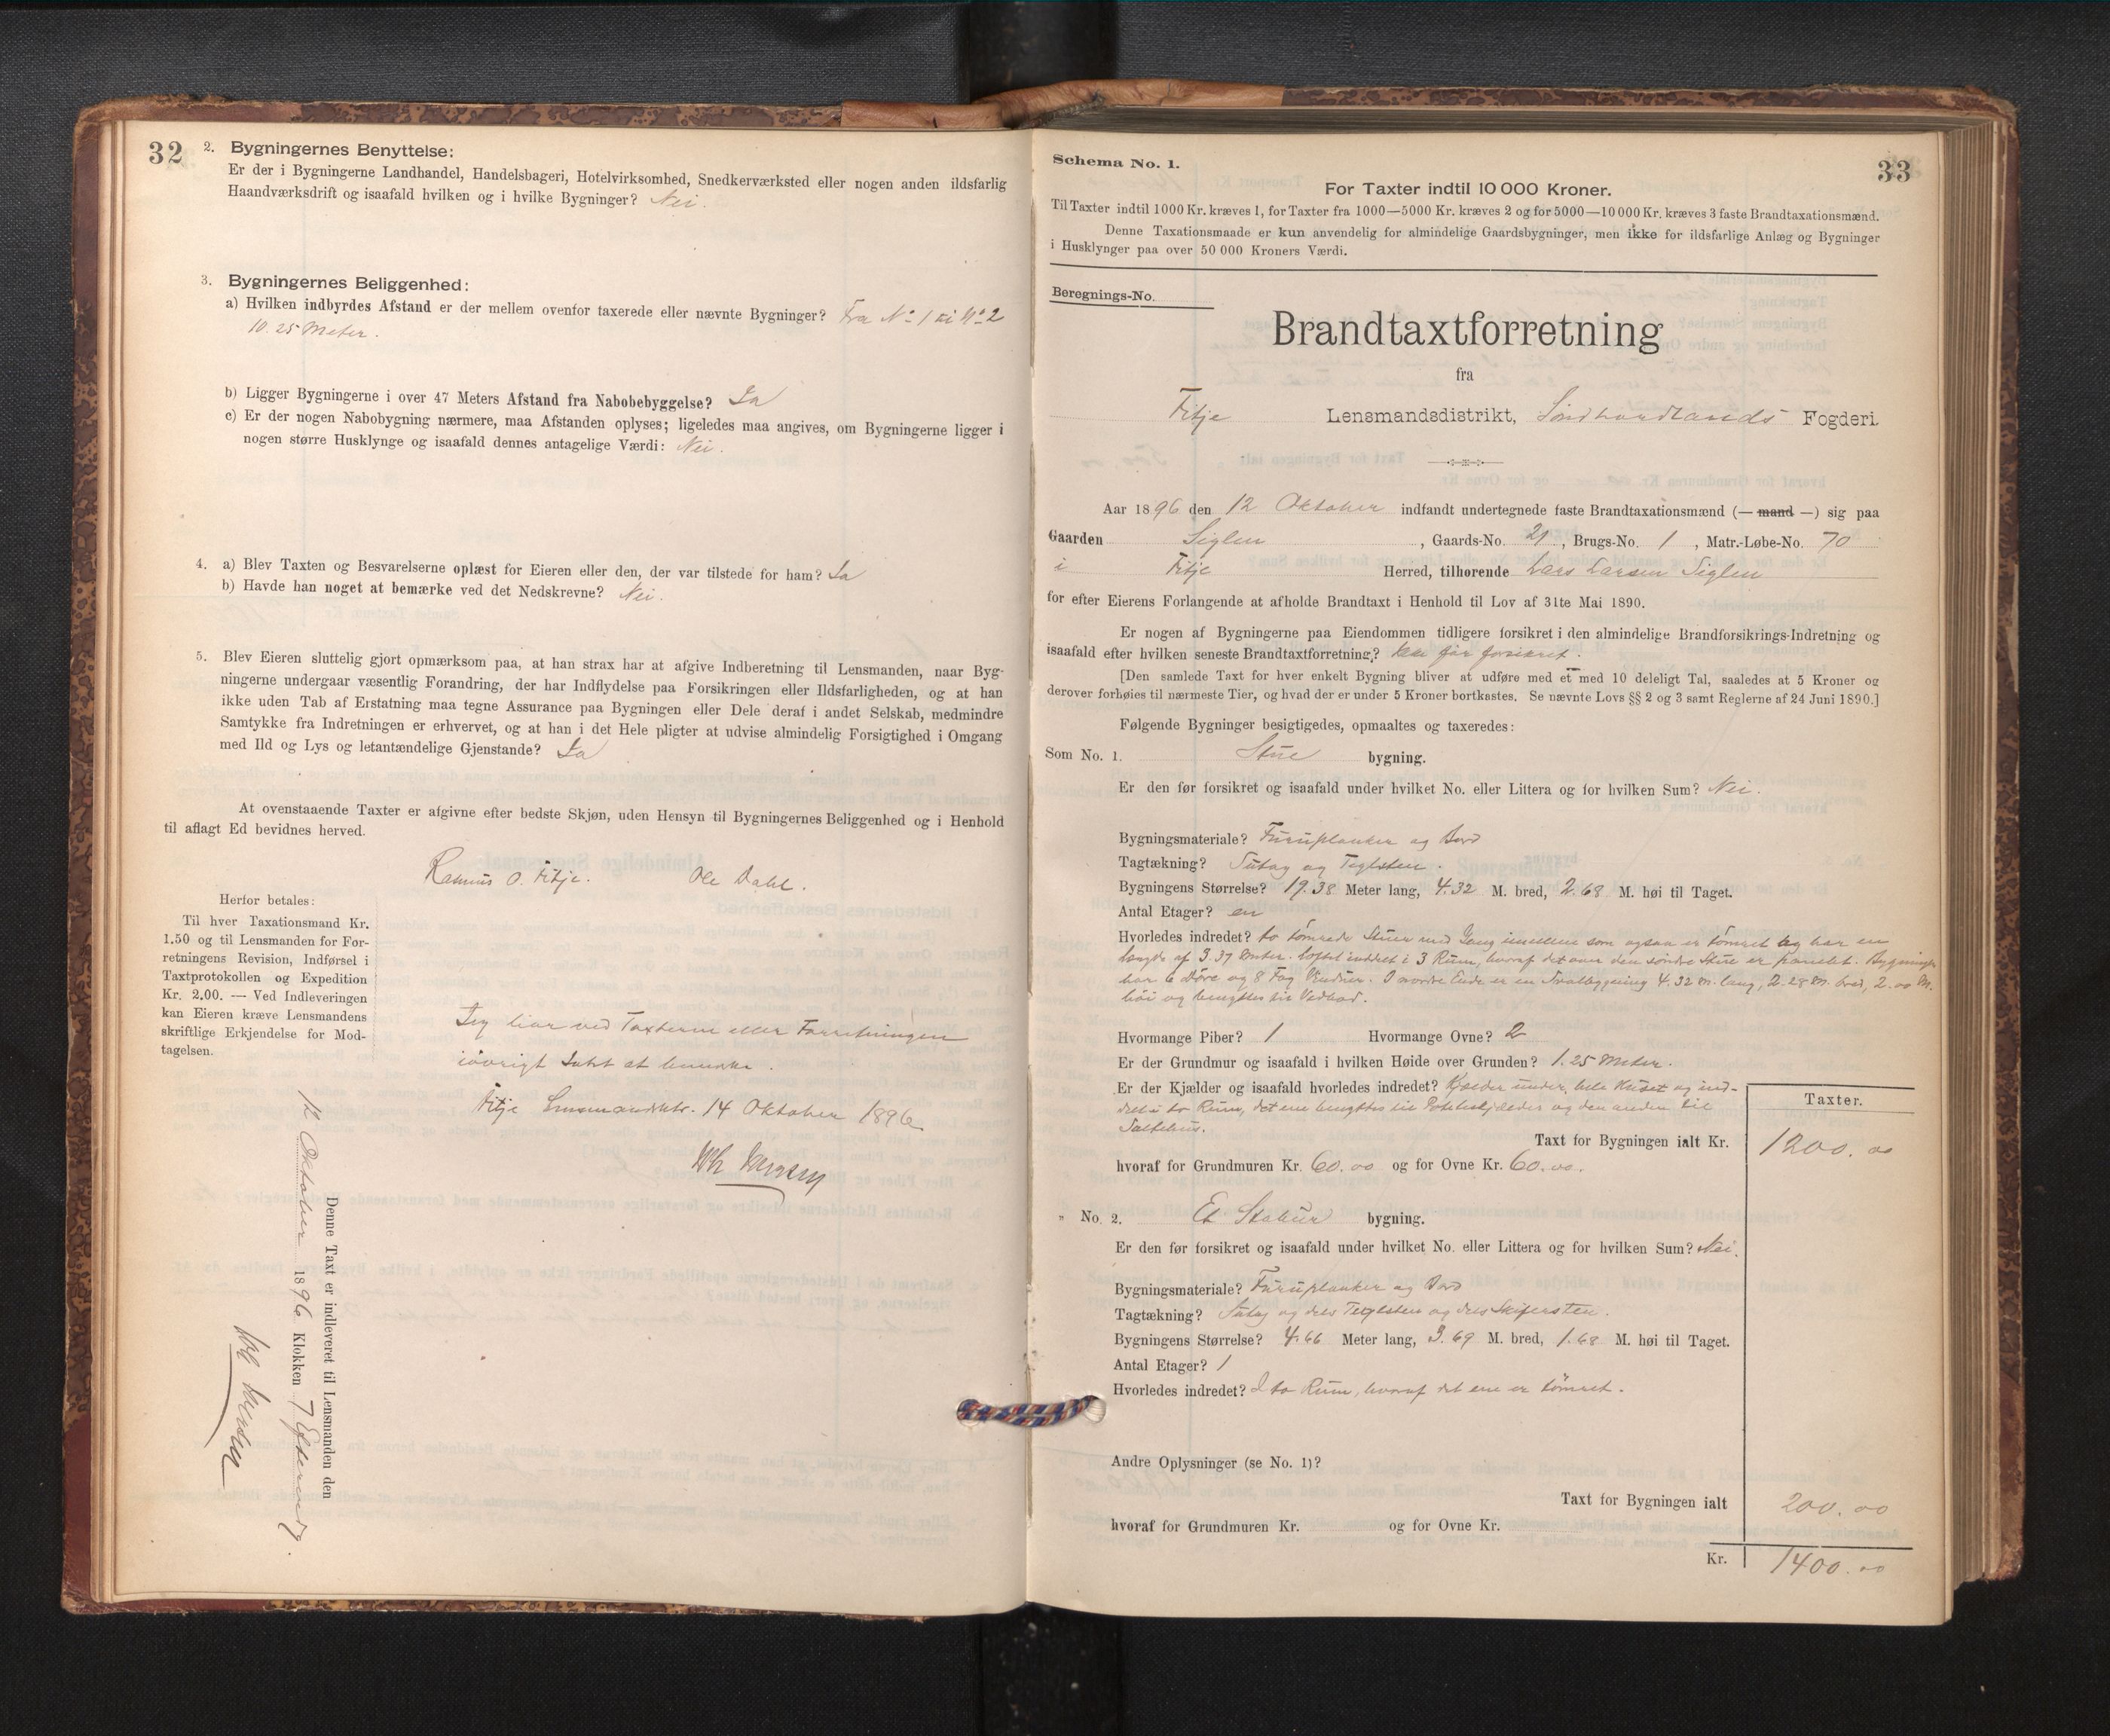 32
2. Bygningernes Benyttelse:
Er der i Bygningerne Landhandel, Handelsbageri, Hotelvirksomhed, Snedkerværksted eller nogen anden ildsfarlig
Haandværksdrift og isaafald hvilken og i hvilke Bygninger? Nei.
3. Bygningernes Beliggenhed:
a) Hvilken indbyrdes Afstand er der mellem ovenfor taxerede eller nævnte Bygninger? Fra No 1 til No 2
10.25 Meter.
b) Ligger Bygningerne i over 47 Meters Afstand fra Nabobebyggelse? Ja
c) Er der nogen Nabobygning nærmere, maa Afstanden oplyses; ligeledes maa angives, om Bygningerne ligger i
nogen større Husklynge og isaafald dennes antagelige Værdi: Nei.
4. a) Blev Taxten og Besvarelserne oplæst for Eieren eller den, der var tilstede for ham? Ja
b) Havde han noget at bemærke ved det Nedskrevne? Nei.
5. Blev Eieren sluttelig gjort opmærksom paa, at han strax har at afgive Indberetning til Lensmanden, naar Byg-
ningerne undergaar væsentlig Forandring, der har Indflydelse paa Forsikringen eller Ildsfarligheden, og at han
ikke uden Tab af Erstatning maa tegne Assurance paa Bygningen eller Dele deraf i andet Selskab, medmindre
Samtykke fra Indretningen er erhvervet, og at han i det Hele pligter at udvise almindelig Forsigtighed i Omgang
med Ild og Lys og letantændelige Gjenstande? Ja
At ovenstaaende Taxter er afgivne efter bedste Skjøn, uden Hensyn til Bygningernes Beliggenhed og i Henhold
til aflagt Ed bevidnes herved.
Rasmus O. Fitje. Ole Dahl.
Herfor betales:
Til hver Taxationsmand Kr.
1.50 og til Lensmanden for For-
retningens Revision, Indførsel i
Taxtprotokollen og Expedition
Kr. 2.00. — Ved Indleveringen
kan Eieren kræve Lensmandens
skriftlige Erkjendelse for Mod-
tagelsen.
Jeg har ved Taxterne eller Forretningen
iøvrigt Intet at bemærke.
Fitje Lensmandsktr. 14 Oktober 1896
Denne Taxt er indleveret til Lensmanden den
12 Oktober 1896 Klokken 7 Efterm.
33
Schema No. 1.
For Taxter indtil 10 000 Kroner.
Til Taxter indtil 1000 Kr. kræves 1, for Taxter fra 1000—5000 Kr. kræves 2 og for 5000—10 000 Kr. kræves 3 faste Brandtaxationsmænd.
Denne Taxationsmaade er kun anvendelig for almindelige Gaardsbygninger, men ikke for ildsfarlige Anlæg og Bygninger
i Husklynger paa over 50 000 Kroners Værdi.
Beregnings-No.
Brandtaxtforretning
fra
Fitje Lensmandsdistrikt, Søndhordlands Fogderi.
Aar 1896 den 12 Oktober indfandt undertegnede faste Brandtaxationsmænd (— mand —) sig paa
Gaarden Siglen, Gaards-No. 21, Brugs-No. 1, Matr.-Løbe-No. 70
i Fitje Herred, tilhørende Lars Larsen Siglen
for efter Eierens Forlangende at afholde Brandtaxt i Henhold til Lov af 31te Mai 1890.
Er nogen af Bygningerne paa Eiendommen tidligere forsikret i den almindelige Brandforsikrings-Indretning og
isaafald efter hvilken seneste Brandtaxtforretning? Ikke før forsikret.
[Den samlede Taxt for hver enkelt Bygning bliver at udføre med et med 10 deleligt Tal, saaledes at 5 Kroner og
derover forhøies til nærmeste Tier, og hvad der er under 5 Kroner bortkastes. Se nævnte Lovs §§ 2 og 3 samt Reglerne af 24 Juni 1890.]
Følgende Bygninger besigtigedes, opmaaltes og taxeredes:
Som No. 1. Stue bygning.
Er den før forsikret og isaafald under hvilket No. eller Littera og for hvilken Sum? Nei.
Bygningsmateriale? Furuplanker og Bord
Tagtækning? Sutag og Teglsten.
Bygningens Størrelse? 19.38 Meter lang, 4.32 M. bred, 2.68 M. høi til Taget.
Antal Etager? en
Hvorledes indredet? to tømrede Stuer med Gang imellem som ogsaa er tømret og har en
Længde af 3.37 Meter. Loftet inddelt i 3 Rum, hvoraf det over den søndre Stue er panelet. Bygningen
har 6 Døre og 8 Fag Vinduer. I nordre Ende er en Svalbygning 4.32 M. lang, 2.28 M. bred, 2.00 M.
høi og benyttes til Vedbod.
Hvormange Piber? 1 Hvormange Ovne? 2
Er der Grundmur og isaafald i hvilken Høide over Grunden? 1.25 Meter.
Er der Kjælder og isaafald hvorledes indredet? Kjælder under hele Huset og ind-
delt i to Rum, det ene benyttes til Potetkjælder og den anden til
Saltehus.
Taxter.
Taxt for Bygningen ialt Kr. 1200.00
hvoraf for Grundmuren Kr. 60.00 og for Ovne Kr. 60.00.
" No. 2. Et Stabur bygning.
Er den før forsikret og isaafald under hvilket No. eller Littera og for hvilken Sum? Nei.
Bygningsmateriale? Furuplanker og Bord
Tagtækning? Sutag og dels Teglsten og dels Skifersten.
Bygningens Størrelse? 4.66 Meter lang, 3.69 M. bred, 1.68 M. høi til Taget.
Antal Etager? 1
Hvorledes indredet? I to Rum, hvoraf det ene er tømret.
Andre Oplysninger (se No. 1)?
Taxt for Bygningen ialt 200.00
hvoraf for Grundmuren Kr. og for Ovne Kr.
Kr. 1400.00